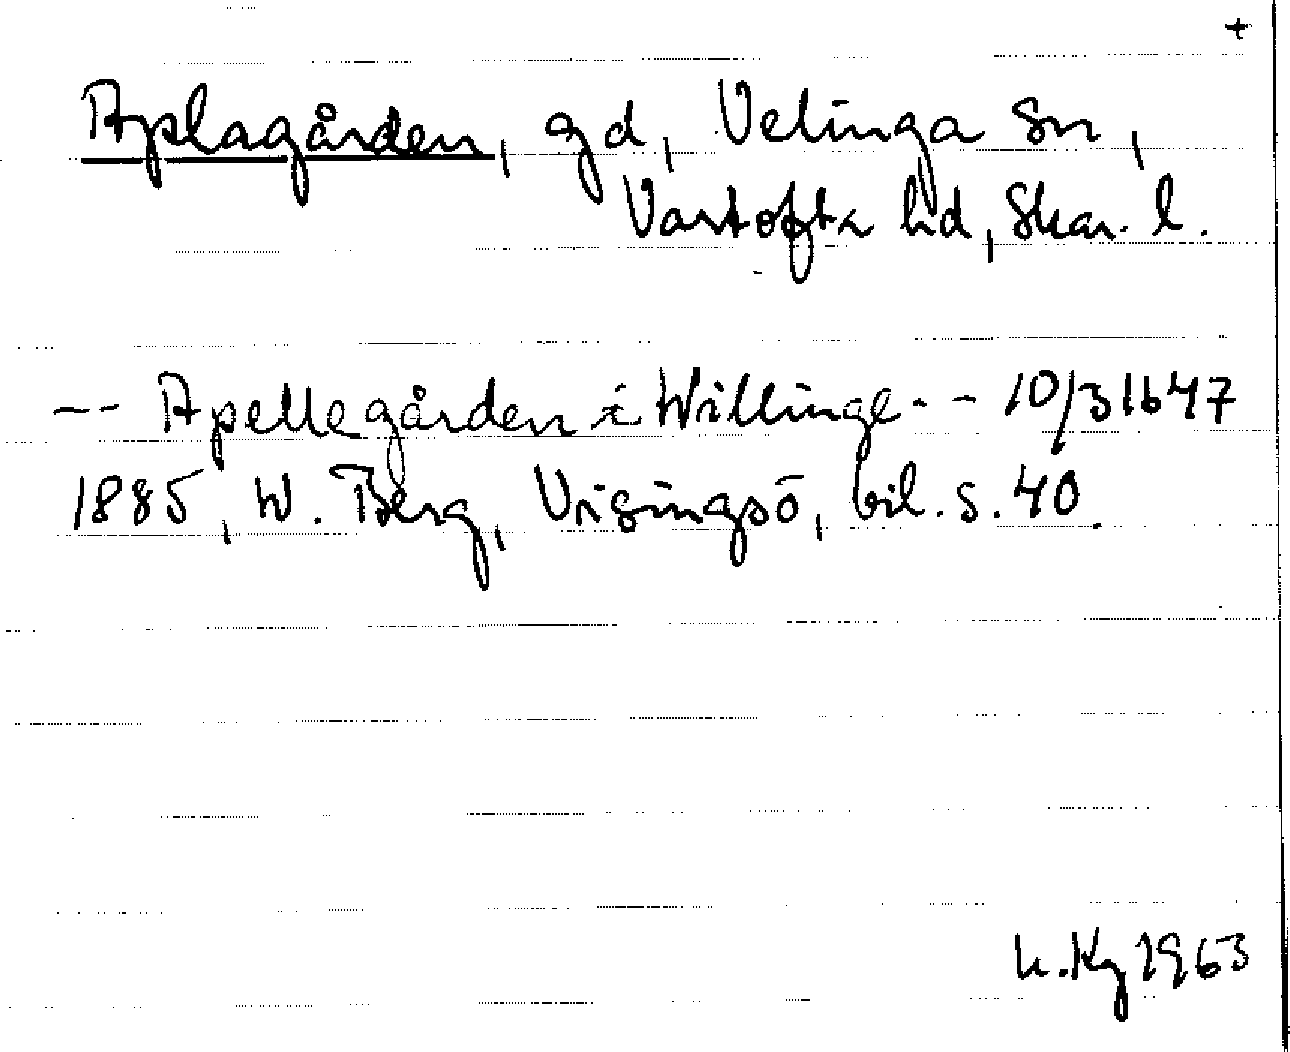 +
Aplagården, gd, Velinga sn,
Vartofta hd, Skar. l.
-- Apellegården i Willinge -- 10/3 1647
1885, W. Berg, Visingsö, bil. s. 40.
K. Kg 1963